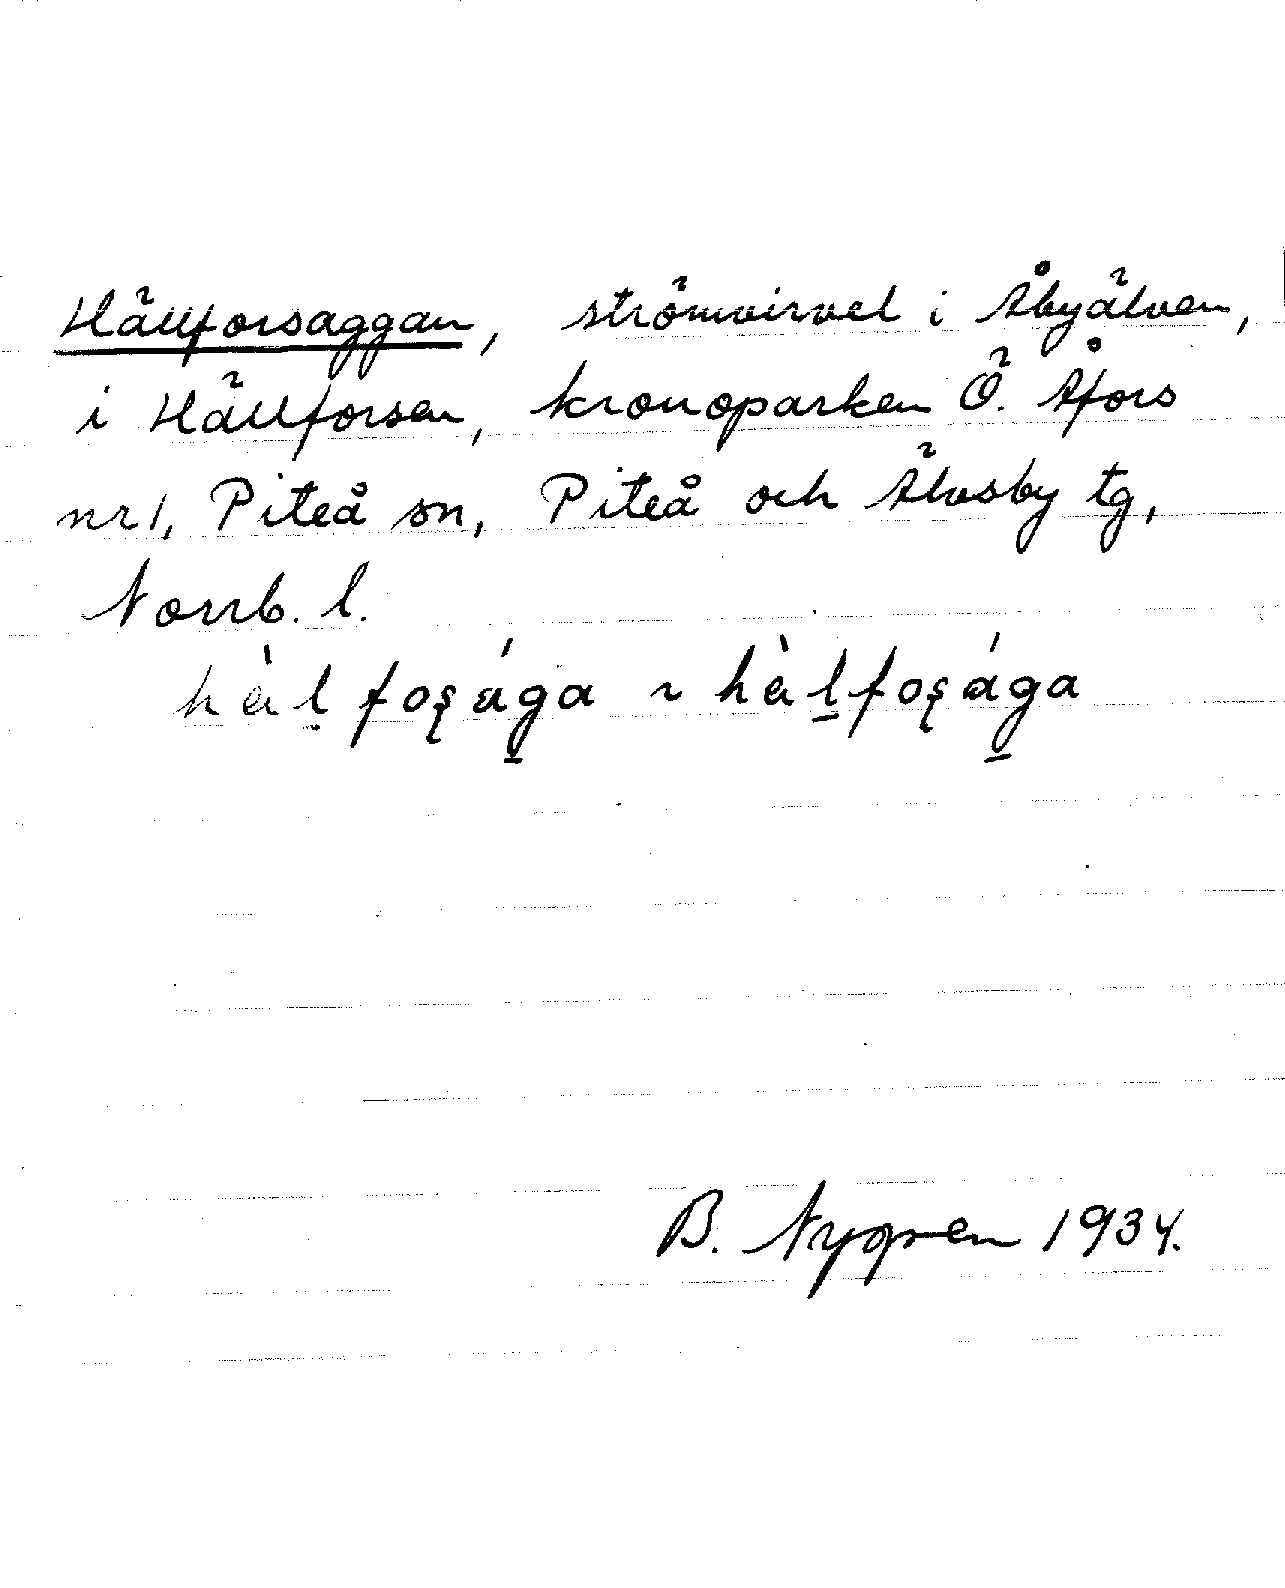 Hällforsaggan, strömvirvel i Åbyälven,
i Hällforsen, kronoparken Ö. Åfors
nr 1, Piteå sn, Piteå och Älvsby tg,
Norrb. l.
hàḷfoʂága ~ hàḻfoʂág̱a
B. Nygren 1934.